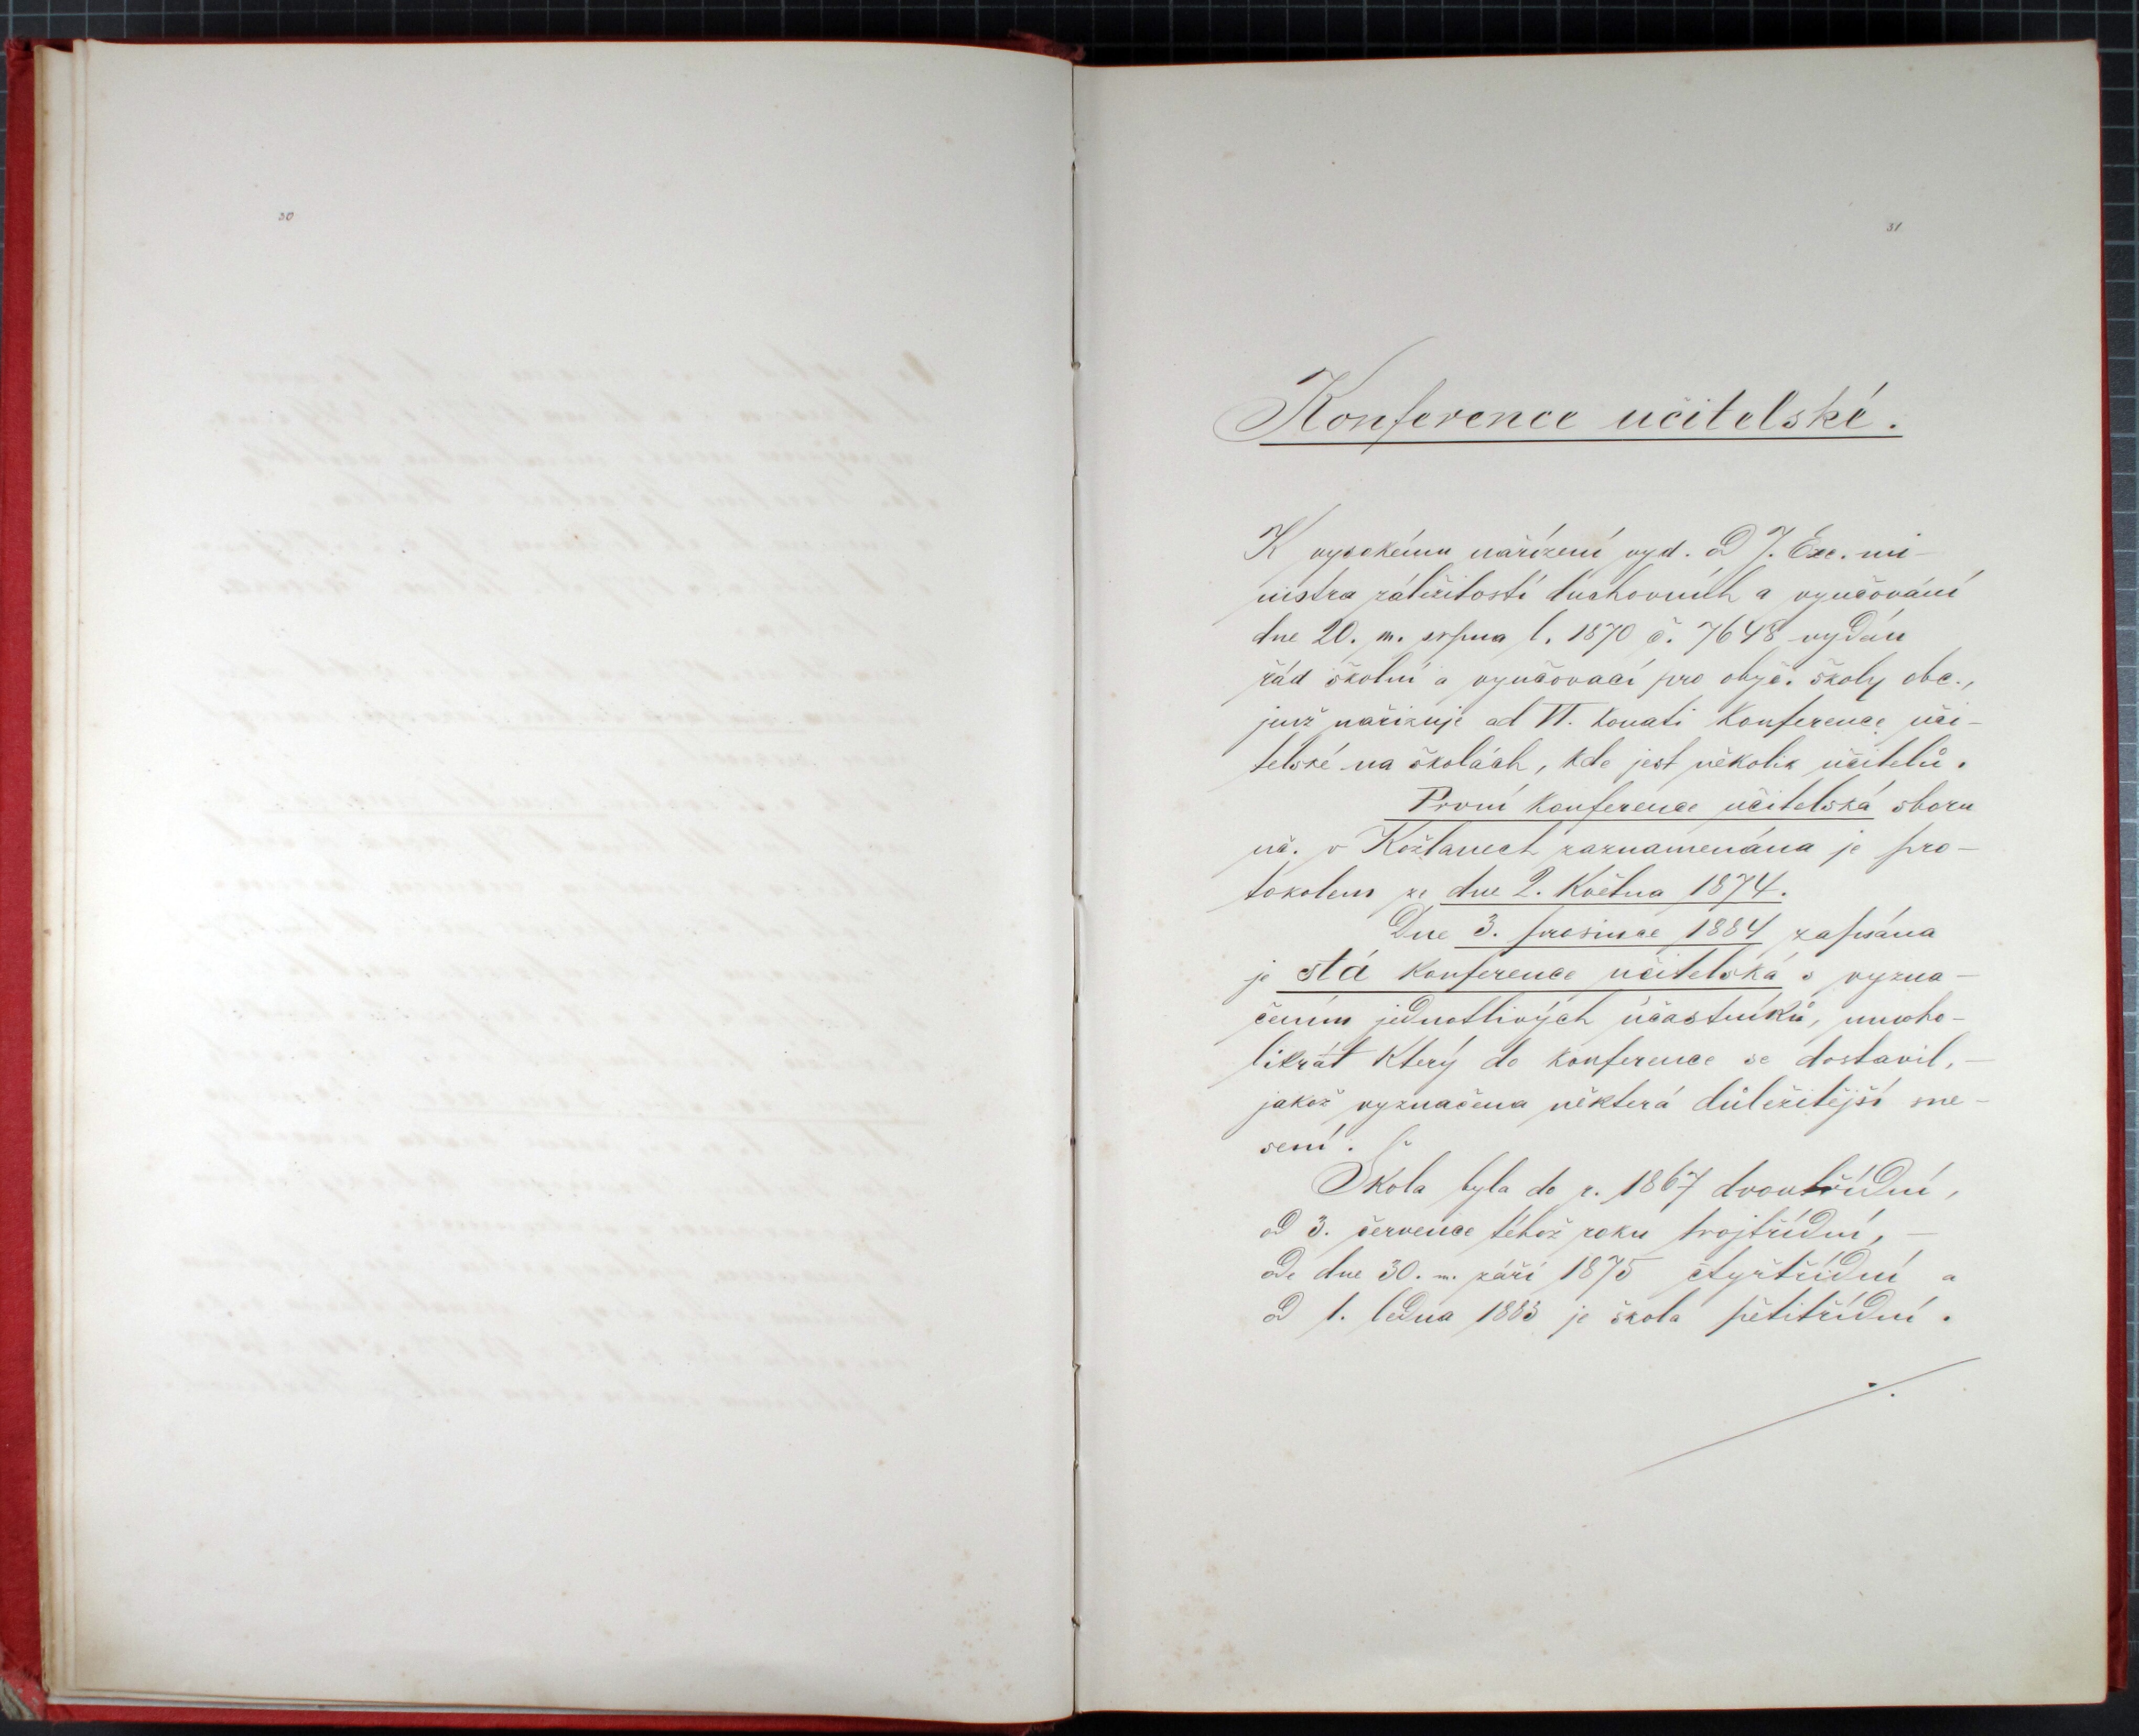 30
31
Konference učitelské.
K vysokému nařízení vyd. od J. Exc. mi-
nistra záležitostí duchovních a vyučování
dne 20. m. srpna l. 1870 č. 7648 vydán
řád školní a vyučovací pro obyč. školy obc.,
jenž nařizuje ad VI. konati konference uči-
telské na školách, kde jest několik učitelů.
První konference učitelská sboru
uč. v Kožlanech zaznamenána je pro-
tokolem ze dne 2. května 1874.
Dne 3. prosince 1884 zapsána
je stá konference učitelská s vyzna-
čením jednotlivých účastníků, mnoho-
likrát který do konference se dostavil, –
jakož vyznačena některá důležitější sne-
sení.
Škola byla do r. 1867 dvoutřídní,
od 3. července téhož roku trojtřídní, –
ode dne 30. m. září 1875 čtyřtřídní a
od 1. ledna 1883 je škola pětitřídní.